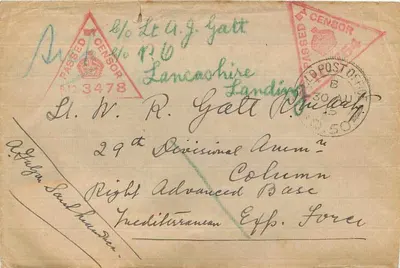 c/o Lt A. J. Gatt
c/o P.O
Lancashire
Landing
PASSED BY CENSOR
No 3478
PASSED BY CENSOR
FIELD POST OFFICE
Lt. W. R. Gatt
29th Divisional Ammn
Column
Right Advanced Base
Mediterranean Exp. Force